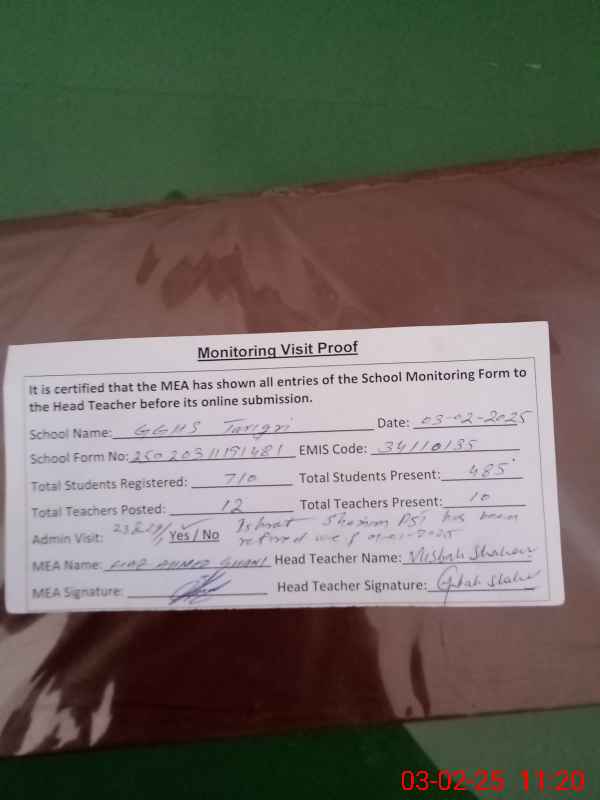 Monitoring Visit Proof
It is certified that the MEA has shown all entries of the School Monitoring Form to
the Head Teacher before its online submission.
School Name: GGHS Date: 03-02-2025
School Form No: EMIS Code: 34110135
Total Students Registered: 710 Total Students Present: 485
Total Teachers Posted: 12 Total Teachers Present: 10
Admin Visit: Yes / No Ishrat has been
01-01-2025
MEA Name: AHMED GHANI Head Teacher Name: Misbah Shaheen
MEA Signature: Head Teacher Signature:
03-02-25 11:20